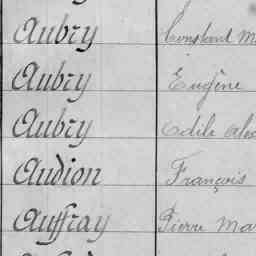 Aubry Constant
Aubry Eugène
Aubry Odile
Audion François
Auffray Pierre